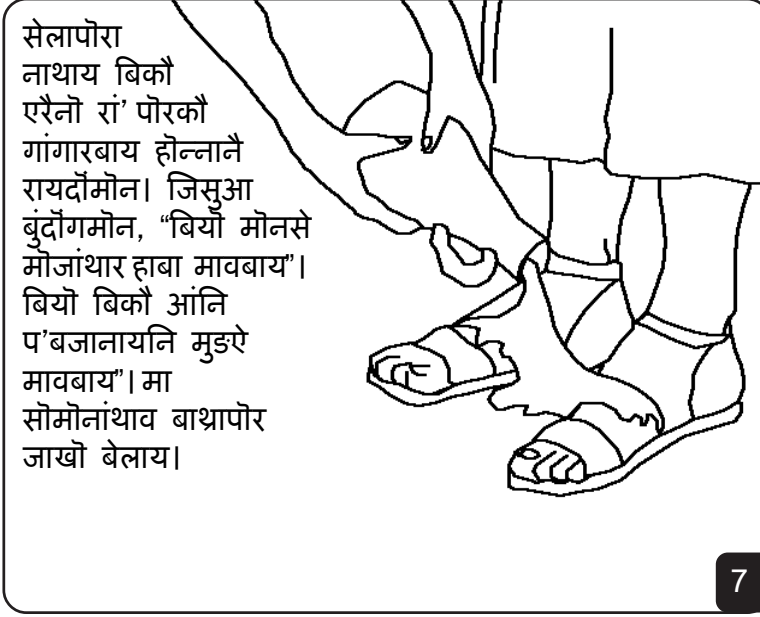 सेलापॊरा
नाथाय बिकौ
एरैनॊ रां’ पॊरकौ
गांगारबाय हॊन्नानै
रायदॊंमॊन। जिसुआ
बुंदॊंगमॊन, “बियॊ मॊनसे
मॊजांथार हाबा मावबाय”।
बियॊ बिकौ आंनि
प’बजानायनि मुङऐ
मावबाय”। मा
सॊमॊनांथाव बाथ्रापॊर
जाखॊ बेलाय।
7